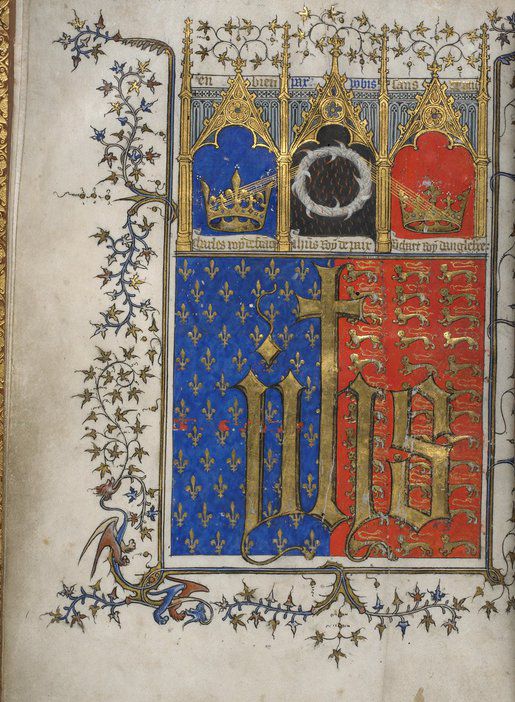 en bien pax vobis sans
Charles roy de france Jhus roy de paix Richart roy dangleterre
ihs